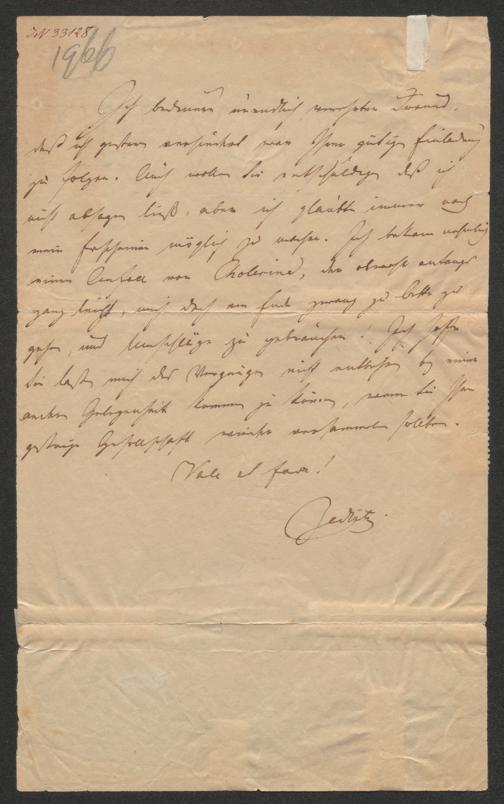 IN 33128
1966
Ich bedauere unendlich verehrter Freund,
daß ich gestern verhindert war Ihrer gütigen Einladung
zu folgen. Auch wollen Sie entschuldigen daß ich
nicht absagen ließ, aber ich glaubte immer noch
mein Erscheinen möglich zu machen. Ich bekam nehmlich
einen Anfall von Cholerine, der obwohl anfangs
ganz leicht, mich doch am Ende zwang zu Bette zu
gehen, und Umschläge zu gebrauchen! Ich hoffe
Sie lassen mich das Vergnügen nicht entbehren bey einer
andern Gelegenheit kommen zu können, wenn Sie Ihre
gestrige Gesellschaft wieder versammeln sollten.
Vale et fave!
Zedlitz.